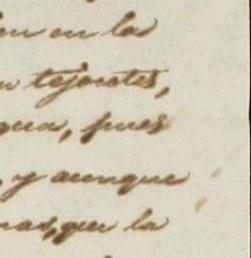 en en las
n tejocotes,
gua, pues
, y aunque
nas, que la